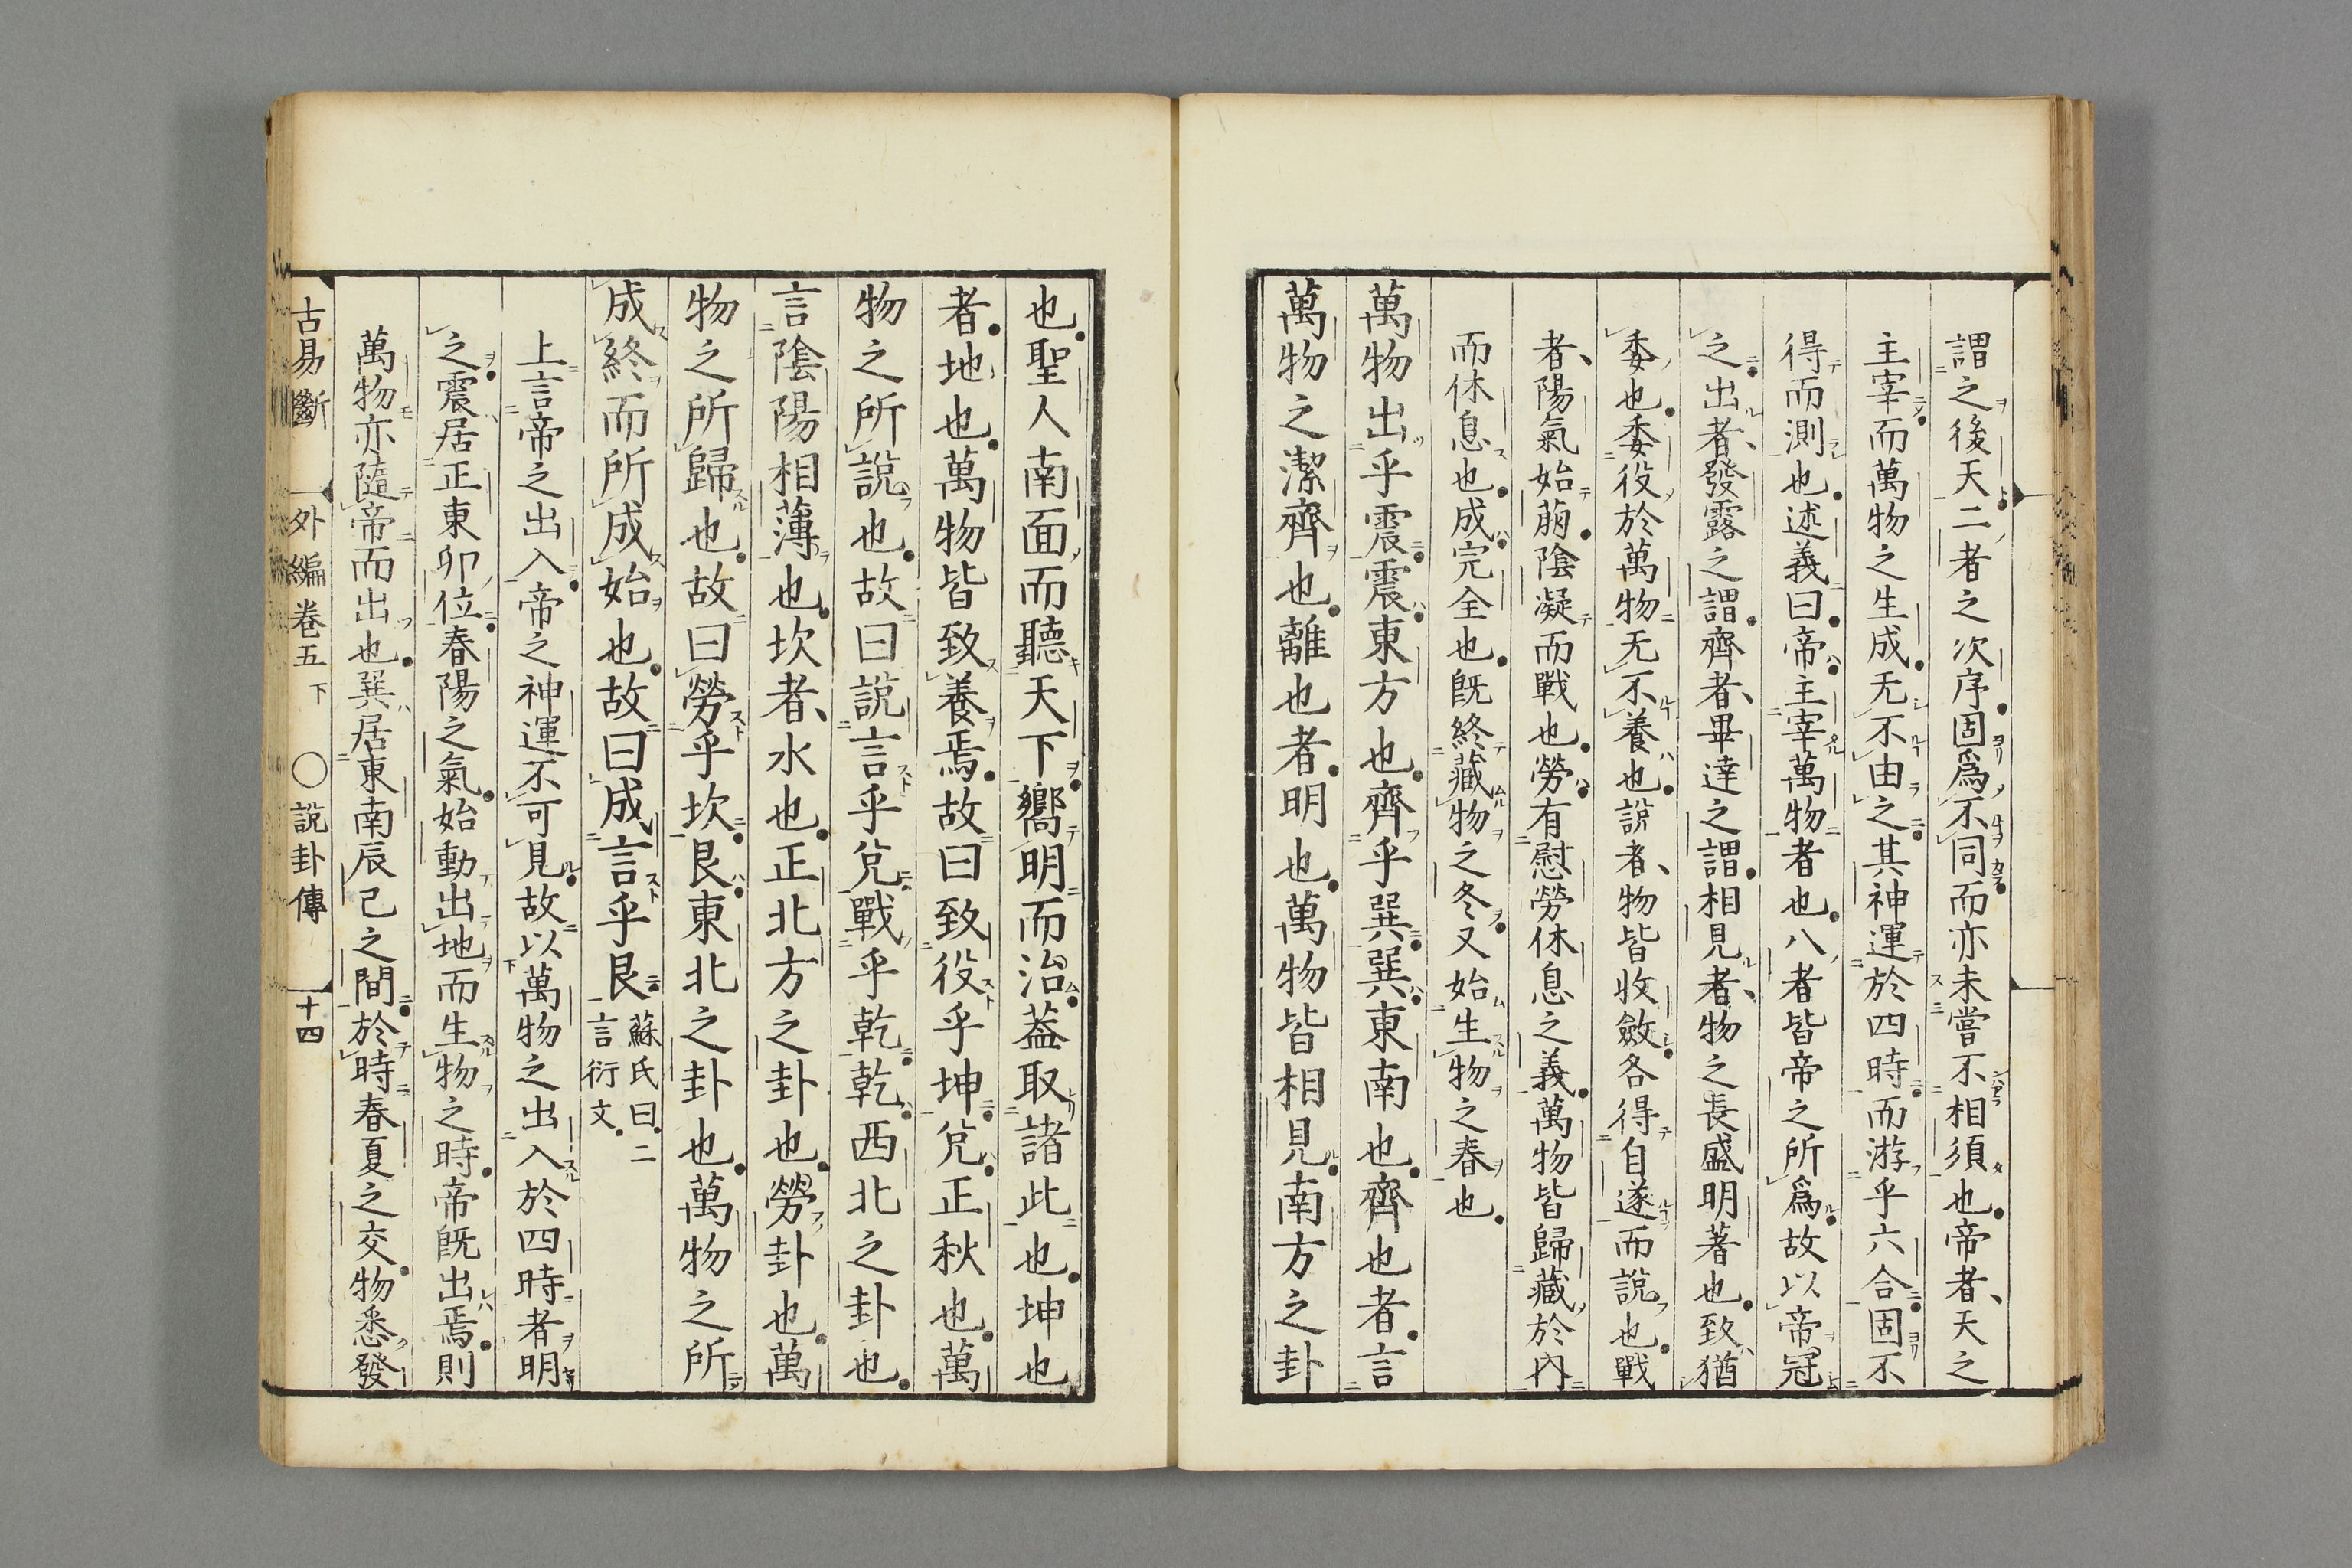 謂之後天二者之次序固爲不同而亦未嘗不相須也帝者天之
主宰而萬物之生成无不由之其神運於四時而游乎六合固不
得而測也述義曰帝主宰萬物者也八者皆帝之所爲故以帝冠
之出者發露之謂齊者畢達之謂相見者物之長盛明著也致猶
委也委役於萬物无不養也說者物皆收斂各得自遂而說也戰
者陽氣始萠陰凝而戰也勞有慰勞休息之義萬物皆歸藏於內
而休息也成完全也既終藏物之冬又始生物之春也
萬物出乎震震東方也齊乎巽巽東南也齊也者言
萬物之潔齊也離也者明也萬物皆相見南方之卦
也聖人南面而聽天下嚮明而治蓋取諸此也坤也
者地也萬物皆致養焉故曰致役乎坤兌正秋也萬
物之所說也故曰說言乎兌戰乎乾乾西北之卦也
言陰陽相薄也坎者水也正北方之卦也勞卦也萬
物之所歸也故曰勞乎坎艮東北之卦也萬物之所
成終而所成始也故曰成言乎艮蘇氏曰二言衍文
上言帝之出入帝之神運不可見故以萬物之出入於四時者明
之震居正東卯位春陽之氣始動出地而生物之時帝既出焉則
萬物亦隨帝而出也巽居東南辰巳之間於時春夏之交物悉發
古易斷 外編卷五下 ○說卦傳 十四